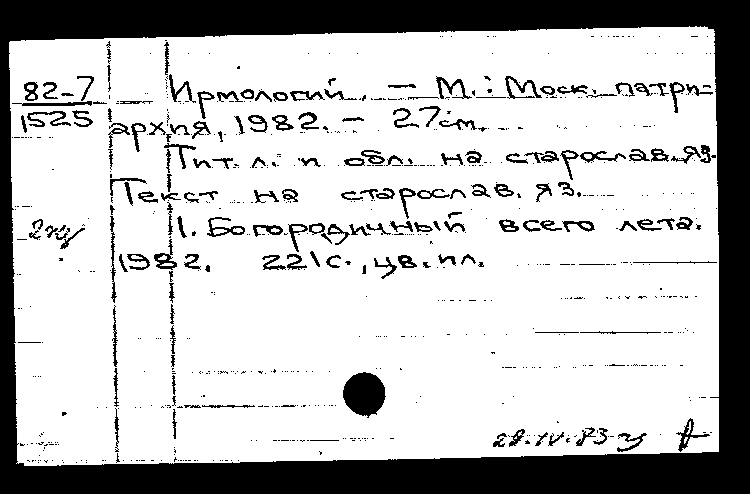 82-7
1525
Ирмологий. — М.: Моск. патри=
архия, 1982. — 27 см.
Тит. л. и обл. на старослав. яз.
Текст на старослав. яз.
1. Богородичный всего лета.
1982. 221 с., цв. ил.
28.IV.83